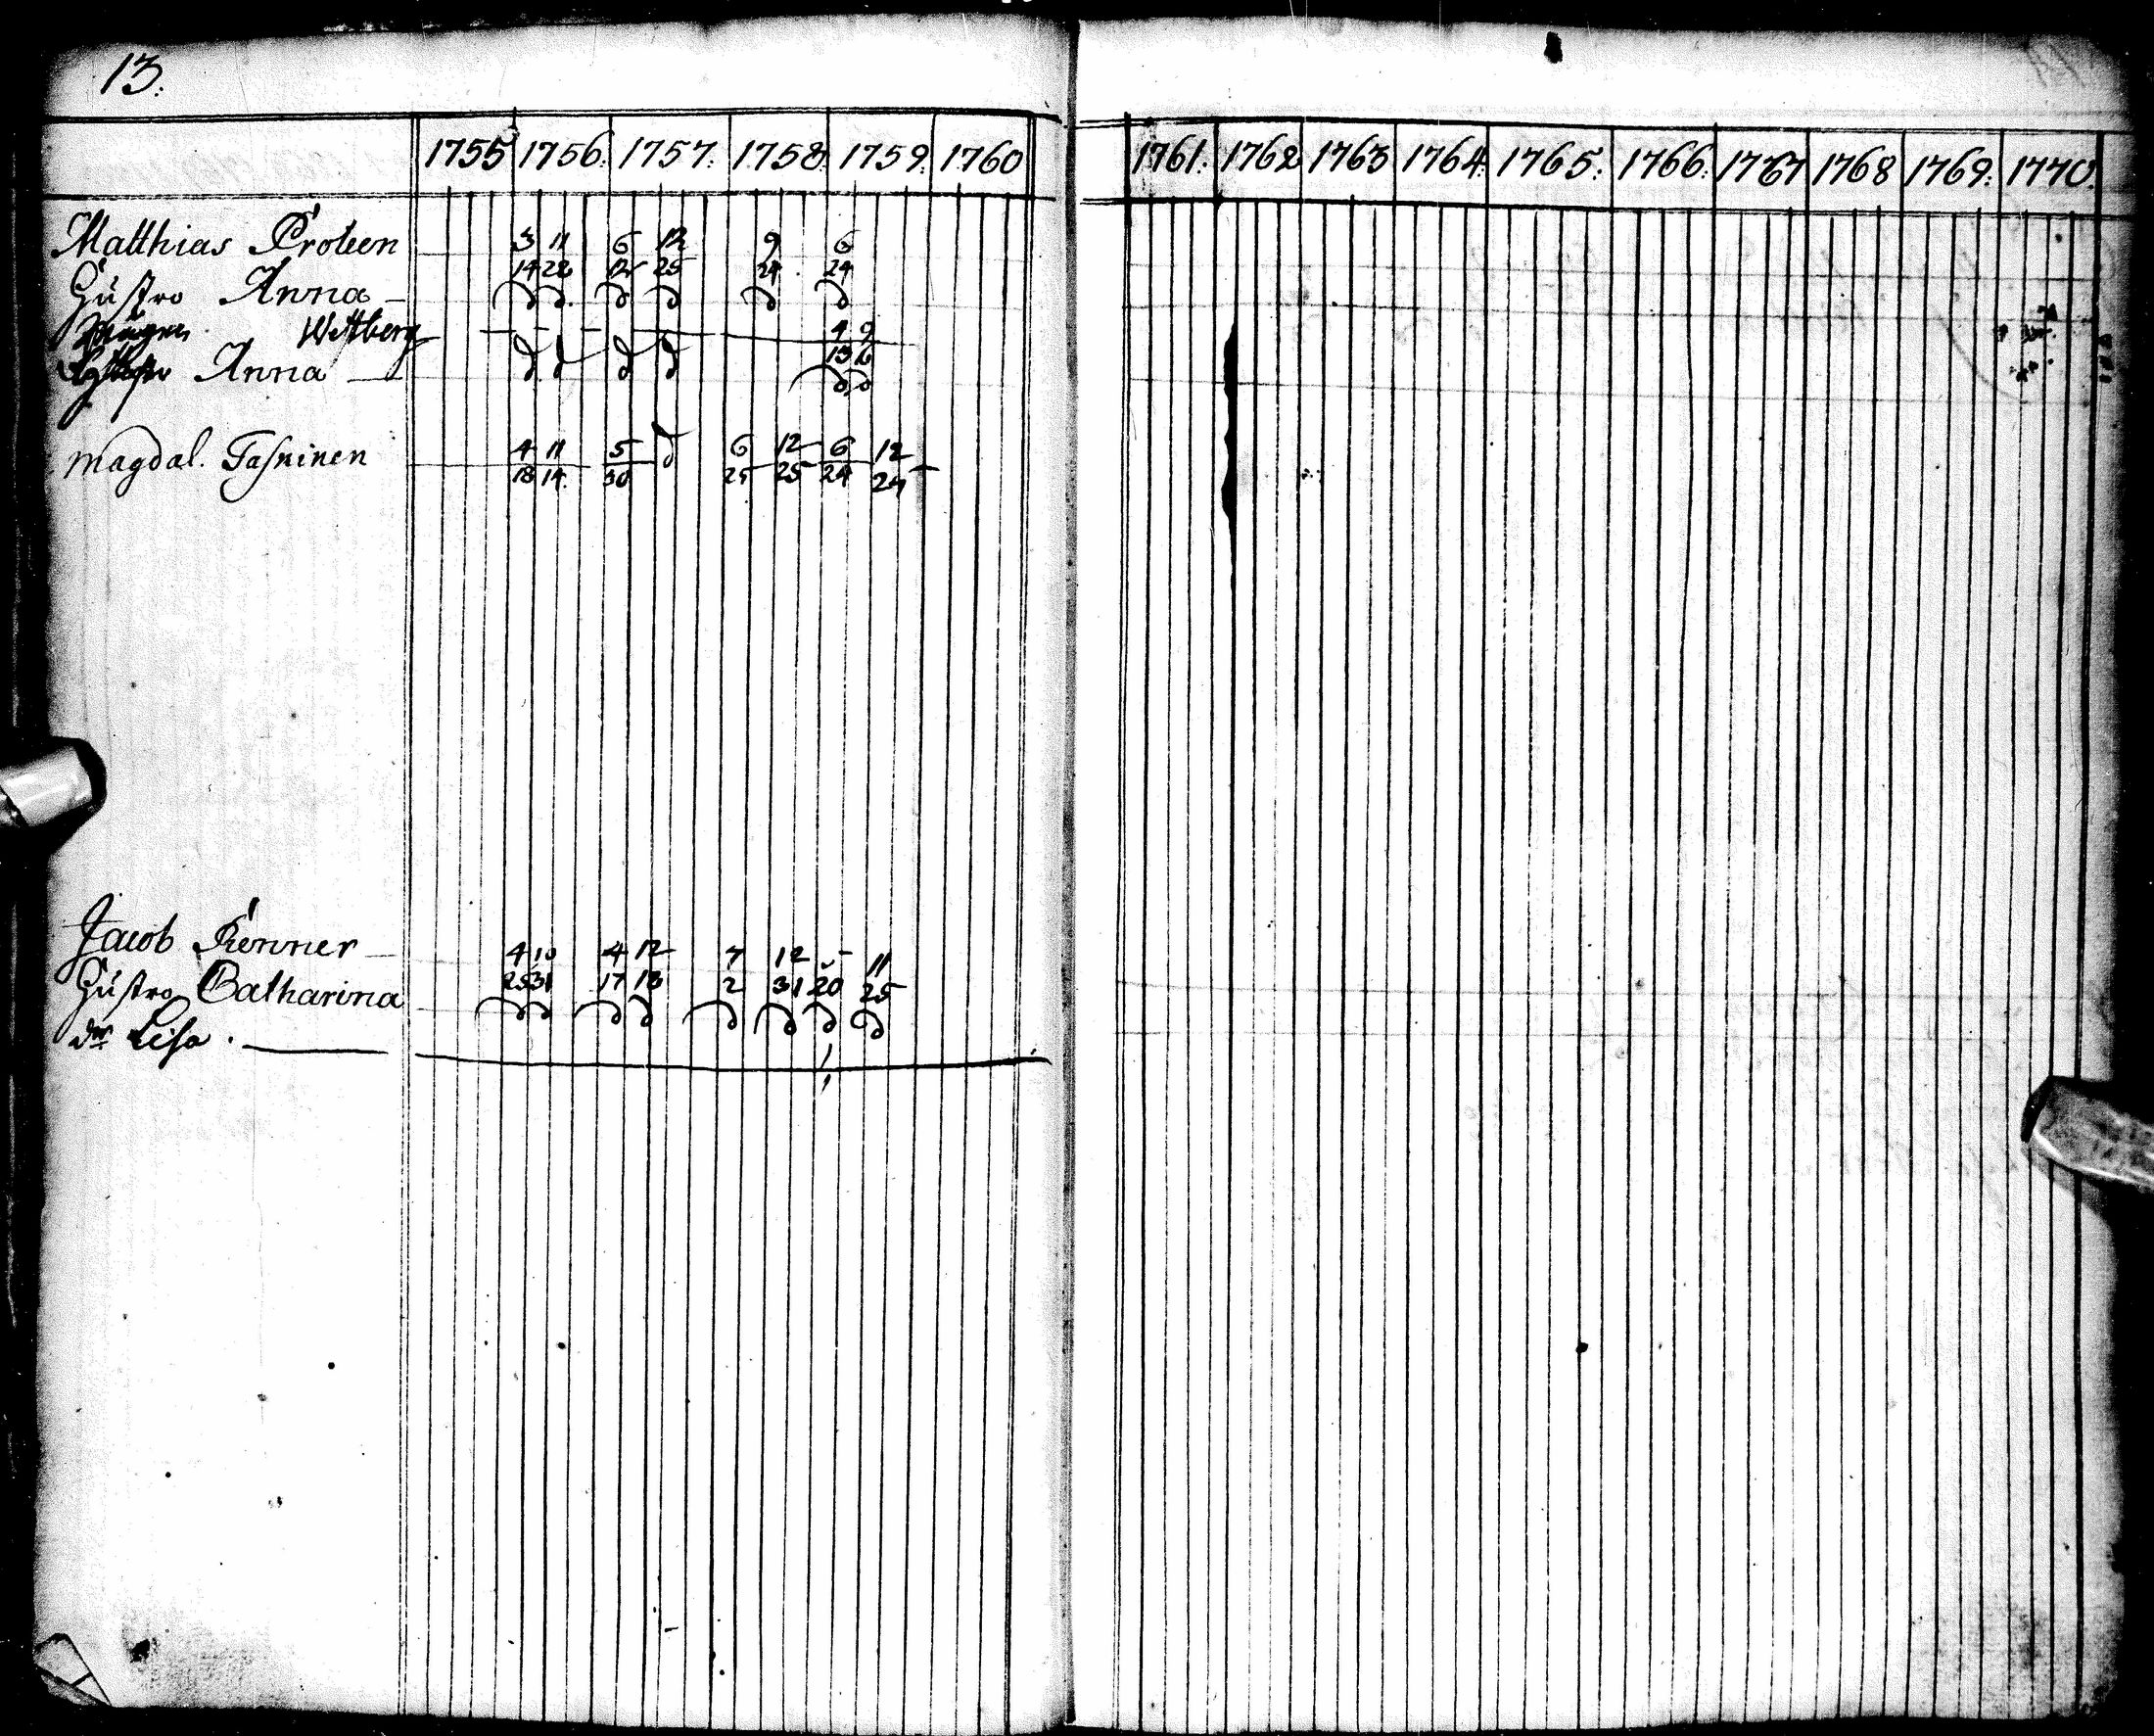 13.
1755 1756. 1757. 1758. 1759. 1760 1761. 1762 1763 1764 1765. 1766. 1767 1768 1769. 1770.
Matthias Proteen 3 11 6 12 9 6
14 28 12 25 24 24
Hustro Anna
Wettberg 4 9
Anna
Magdal. Tasninen 4 11 5 6 12 6 12
18 14 30 25 25 24 24
Jacob Renner 4 10 4 12 7 12 11
Hustro Catharina 25 31 17 18 2 31 20 25
dr Lisa.